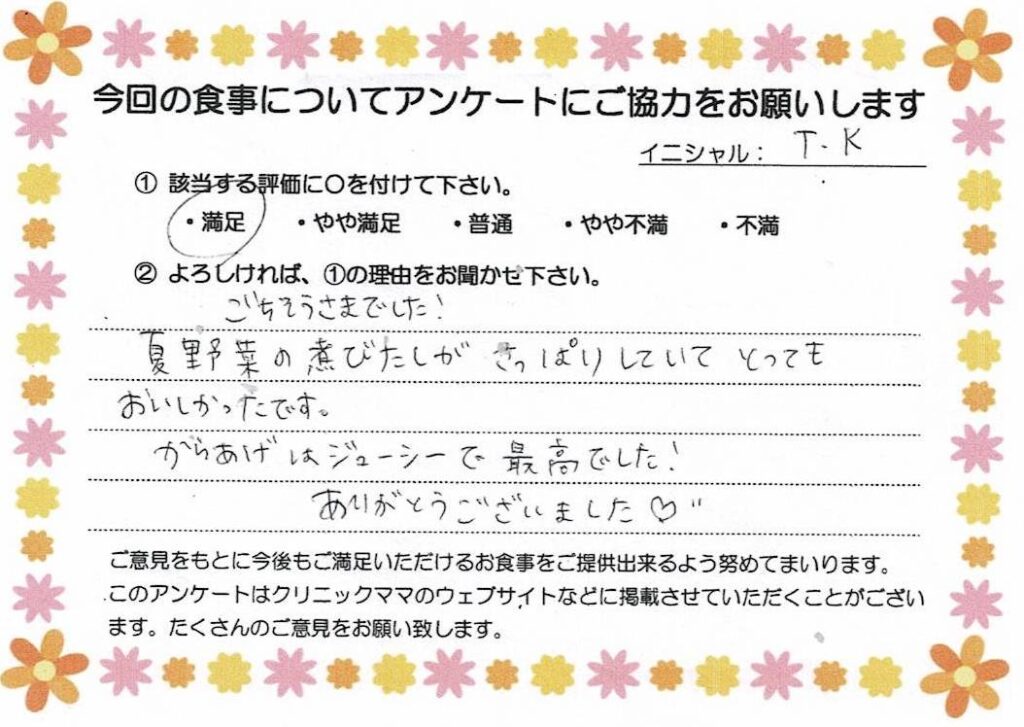 今回の食事についてアンケートにご協力をお願いします
イニシャル： T.K
① 該当する評価に〇を付けて下さい。
・満足 ・やや満足 ・普通 ・やや不満 ・不満
② よろしければ、①の理由をお聞かせ下さい。
ごちそうさまでした!
夏野菜の煮びたしが さっぱりしていて とっても
おいしかったです。
がらあげはジューシーで 最高でした!
ありがとうございました♡"
ご意見をもとに今後もご満足いただけるお食事をご提供出来るよう努めてまいります。
このアンケートはクリニックママのウェブサイトなどに掲載させていただくことがござい
ます。たくさんのご意見をお願い致します。